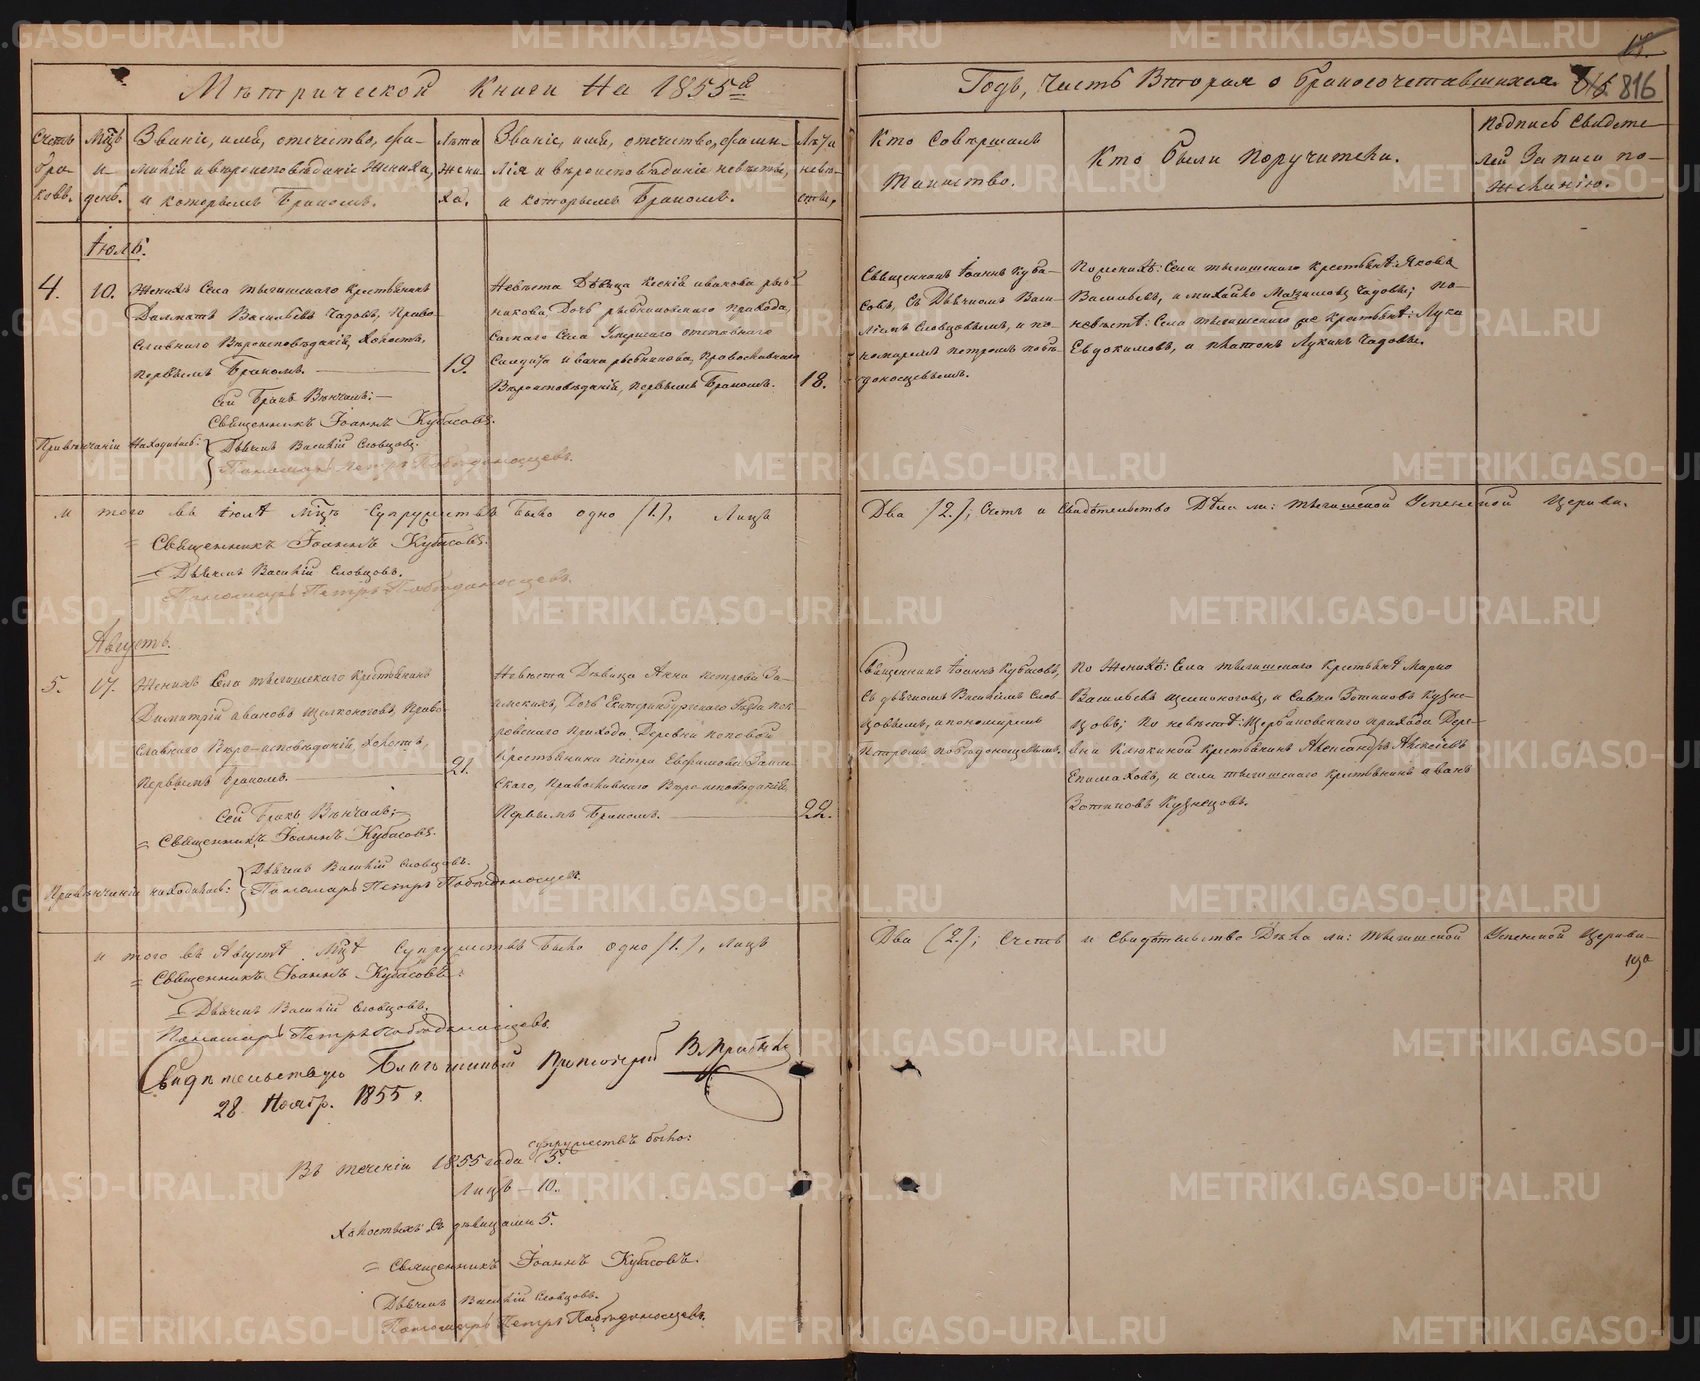 Метрической Книги На 1855й
Годъ, Часть Вторая о бракосочетавшихся. 816
Счетъ браковъ.
Мѣцъ и день.
Званіе, имя, отчество, фамилія и вѣроисповѣданіе Жениха, и которымъ Бракомъ.
Лѣта жениха.
Званіе, имя, отчество, фамилія и вѣроисповѣданіе невѣсты, и которымъ Бракомъ.
Лѣта невѣсты.
Кто Совершалъ Таинство.
Кто были поручители.
Подпись Свидетелей Записи по желанію.
Іюль.
4.
10.
Женихъ Села тыгишскаго крестьянинъ
Далматъ Васильевъ Чадовъ, Право-
славнаго Вѣроисповѣданія, Холостъ,
первымъ Бракомъ.
19.
Невѣста Дѣвица Ксенія иванова рыб-
никова, Дочь рыбниковскаго прихода,
Солдата ивана рыбникова, православнаго
Вѣроисповѣданія, первымъ Бракомъ.
18.
Священникъ Іоаннъ Куба-
совъ, Съ Дьячкомъ Васи-
ліемъ Словцовымъ, и по-
номаремъ петромъ побѣ-
доносцевымъ.
По женихѣ: Села тыгишскаго крестьяне: Яковъ
Васильевъ, и михайло Чадовы; по
невѣстѣ: Села тыгишскаго же крестьяне: Лука
Евдокимовъ, и платонъ Лукинъ Чадовы.
Сей Бракъ Вѣнчалъ:
Священникъ Іоаннъ Кубасовъ.
При вѣнчаніи находились:
Дьячекъ Василій Словцовъ.
Пономарь Петръ Побѣдоносцевъ.
и того въ іюлѣ Мцѣ Супружествъ Было одно (1.), Лицъ
Два (2.); Счетъ и Свидѣтельство Дѣла ли: тыгишской Успенской Церкви.
Священникъ Іоаннъ Кубасовъ.
Дьячекъ Василій Словцовъ.
Пономарь Петръ Побѣдоносцевъ.
Августъ.
5.
17.
Женихъ Села тыгишскаго крестьянинъ
Димитрій ивановъ Щелконоговъ, Право-
славнаго Вѣро-исповѣданія, холостъ,
Первымъ бракомъ.
21.
Невѣста Дѣвица Анна петрова За-
имскихъ, Дочь Екатеринбургскаго Уѣзда пок-
ровскаго прихода, Деревни поповой
Крестьянина петра Евфимова Заим-
скаго, православнаго Вѣро-исповѣданія,
Первымъ Бракомъ.
22.
Священникъ Іоаннъ Кубасовъ,
Съ дьячкомъ Василіемъ Слов-
цовымъ, и пономаремъ
петромъ побѣдоносцевымъ.
По женихѣ: Села тыгишскаго крестьяне Марко
Васильевъ щелконоговъ, и Савва Зотиковъ Кузне-
цовъ; По невѣстѣ: Щербаковскаго прихода Дере-
вни Клюкиной крестьянинъ Александръ Алексѣевъ
Епимаховъ, и села тыгишскаго крестьянинъ иванъ
Зотиковъ Кузнецовъ.
Сей Бракъ Вѣнчалъ:
Священникъ Іоаннъ Кубасовъ.
При вѣнчаніи находились:
Дьячекъ Василій Словцовъ.
Пономарь Петръ Побѣдоносцевъ.
и того въ Августѣ Мцѣ Супружествъ Было одно (1.), Лицъ
Два (2.); Счетъ и Свидѣтельство Дѣла ли: тыгишской Успенской Церкви
Священникъ Іоаннъ Кубасовъ.
Дьячекъ Василій Словцовъ.
Пономарь Петръ Побѣдоносцевъ.
Свидѣтельствую Благочинный
28. Ноябр. 1855 г.
Въ теченіи 1855 года супружествъ было: 5.
Лицъ — 10.
Холостыхъ Съ дѣвицами 5.
Священникъ Іоаннъ Кубасовъ.
Дьячекъ Василій Словцовъ.
Пономарь Петръ Побѣдоносцевъ.
METRIKI.GASO-URAL.RU